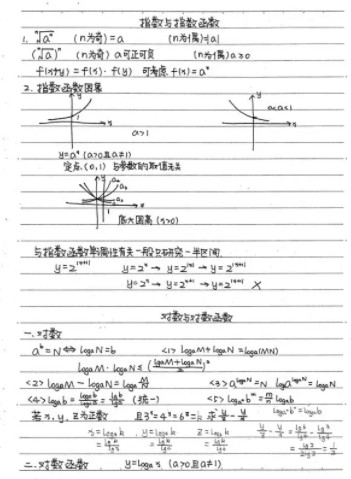 指数与指数函数
1. ⁿ√aⁿ (n为奇)=a (n为偶)=|a|
(ⁿ√a)ⁿ (n为奇) a可正可负 (n为偶) a≥0
f(x+y)=f(x)·f(y) 可考虑 f(x)=aˣ
2. 指数函数图象
y x 1 a>1
y x 0<a<1
y=aˣ (a>0且a≠1)
定点(0,1) 与参数的取值无关
底大图高 (x>0)
与指数函数单调性有关 一般只研究一半区间
y=2^|x+1| y=2ˣ → y=2^|x| → y=2^|x+1|
y=2ˣ → y=2^(x+1) → y=2^|x+1| ×
对数与对数函数
一、对数
aᵇ=N ⇔ logₐN=b <1> logₐM+logₐN=logₐ(MN)
logₐM·logₐN≤(\frac{logₐM+logₐN}{2})²
<2> logₐM-logₐN=logₐ\frac{M}{N} <3> a^(logₐN)=N logₐa^(logₐN)=logₐN
<4> logₐb=\frac{lgb}{lga} (统一) <5> logₐₙbᵐ=\frac{m}{n}logₐb
若x,y,z为正数 且3ˣ=4ʸ=6ᶻ=k 求
x=log₃k y=log₄k z=log₆k
=\frac{lgk}{lg3} =\frac{lgk}{lg4} =\frac{lgk}{lg6}
二、对数函数 y=logₐx (a>0且a≠1)